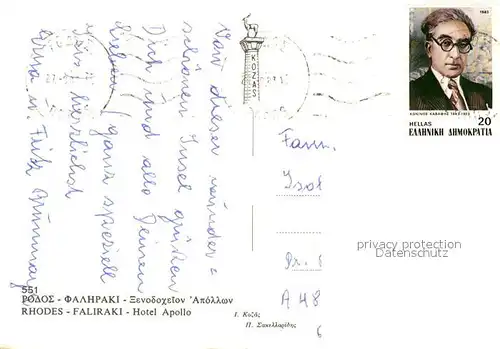 Von dieser wunder=
schönen Insel grüßen
Dich und alle Deinen
Lieben (ganz speziell
Isis) herzlichst
Erna u. Fritz
KOZAS
1983
ΚΩΝ/ΝΟΣ ΚΑΒΑΦΗΣ 1863-1933
HELLAS 20
ΕΛΛΗΝΙΚΗ ΔΗΜΟΚΡΑΤΙΑ
Fam.
Isol
A 48
6
privacy protection
Datenschutz
551
ΡΟΔΟΣ - ΦΑΛΗΡΑΚΙ - Ξενοδοχεῖον Ἀπόλλων
RHODES - FALIRAKI - Hotel Apollo
Ι. Κοζᾶς
Π. Σακελλαρίδης